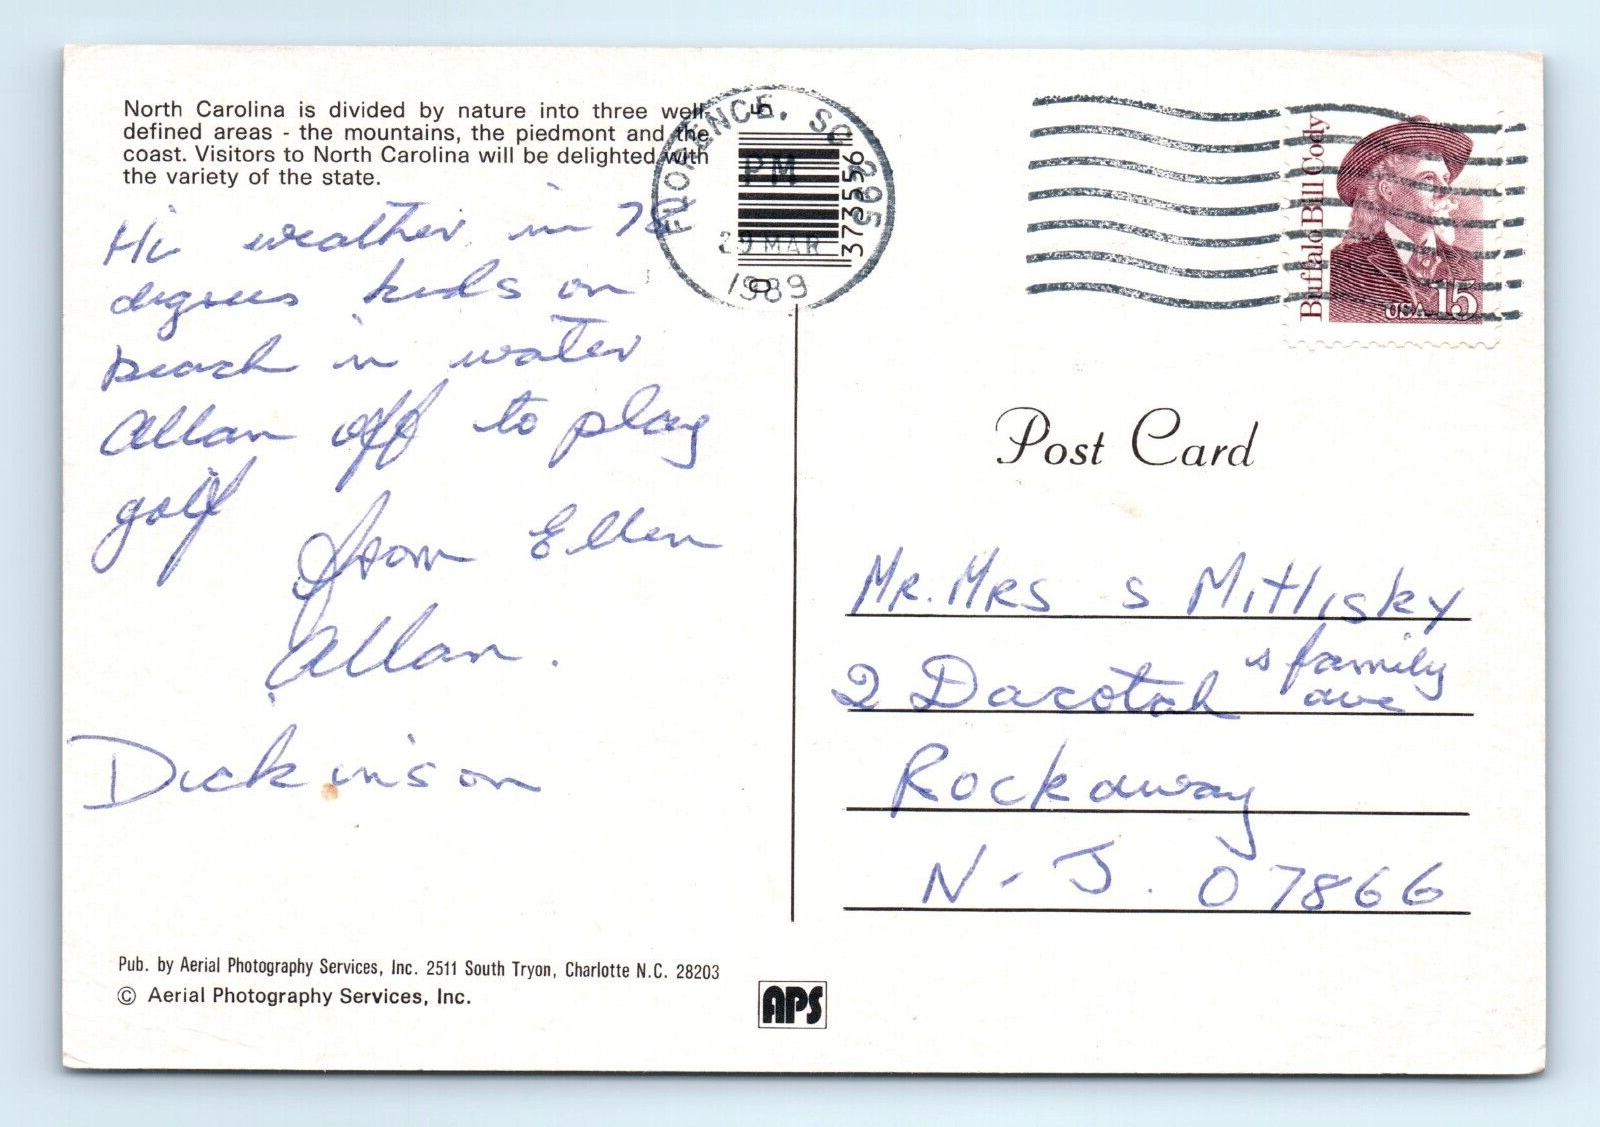 North Carolina is divided by nature into three well
defined areas - the mountains, the piedmont and the
coast. Visitors to North Carolina will be delighted with
the variety of the state.
Hi weather in 78
degrees kids on
beach in water
Allan off to play
golf
from Ellen
Allan.
Dickinson
Pub. by Aerial Photography Services, Inc. 2511 South Tryon, Charlotte N.C. 28203
© Aerial Photography Services, Inc.
APS
FLORENCE, SC 295
PM
29 MAR
1989
5
0
373556
Buffalo Bill Cody
USA 15
Post Card
Mr. Mrs S Mitlisky
& family
2 Dacotah ave
Rockaway
N-J. 07866